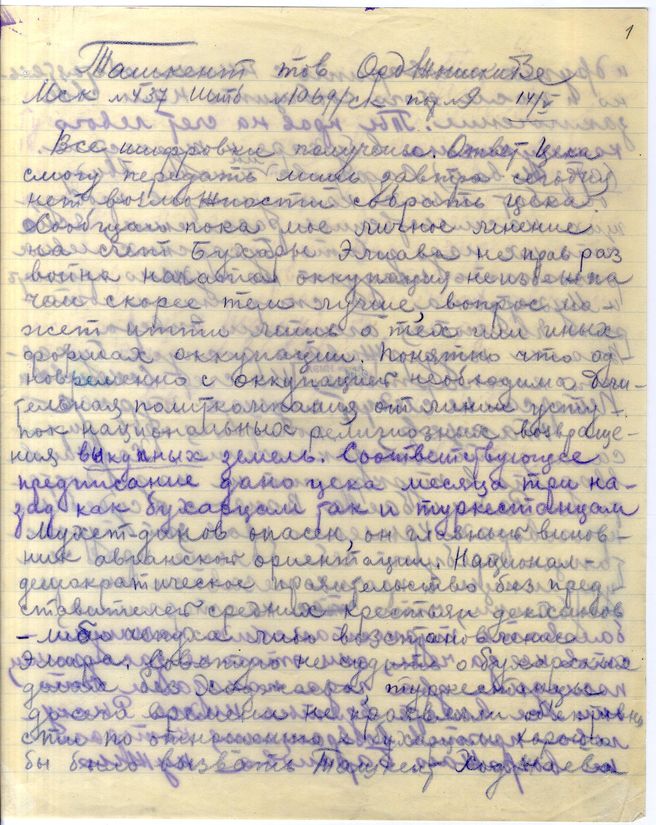 1
Ташкент тов Орджоникидзе
Мск №437 Шть №1069/ск подл 9 14/V
Все шифровки получены. Ответ Цека
смогу передать лишь завтра сегодня
нет возможности собрать Цека
Сообщаю пока мое личное мнение
на счет Бухары Элиава не прав раз
война начата оккупация неизбежна
чем скорее тем лучше, вопрос мо-
жет итти лишь о тех или иных
формах оккупации. Понятно что од-
новременно с оккупацией необходима
тельная политкомпания отмены усту
пок национальных религиозных возвраще-
ния вакуфных земель. Соответствующее
предписание дано цека месяца три на-
зад как бухарцам так и туркестанцам
Мухет-динов опасен, он главный винов-
ник афганской ориентации. Национал-
демократическое правительство без пред-
ставителей средних крестьян декхан
Эмира. не судить о бухарских
делах без туркестанцы
времени не проявляли
сти по отношению к бухарцам хорошо
бы было вызвать Ташкент Ходжаева